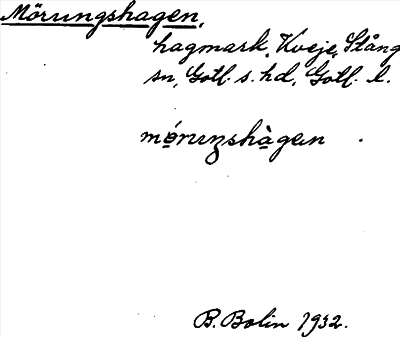 Mörungshagen,
hagmark, Kveje, Stånga
sn, Gotl. s. hd, Gotl. l.
mö́rıŋshàgen
B. Bolin 1932.